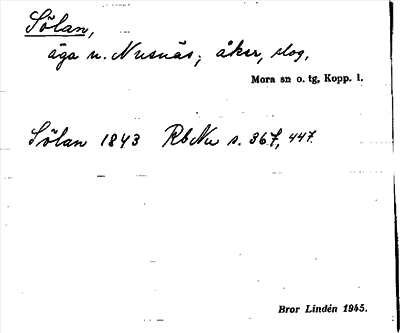 Sölan,
äga n. Nusnäs; åker, slog.
Mora sn o. tg, Kopp. l.
Sölan 1843 RbNu s. 367, 447.
Bror Lindén 1945.